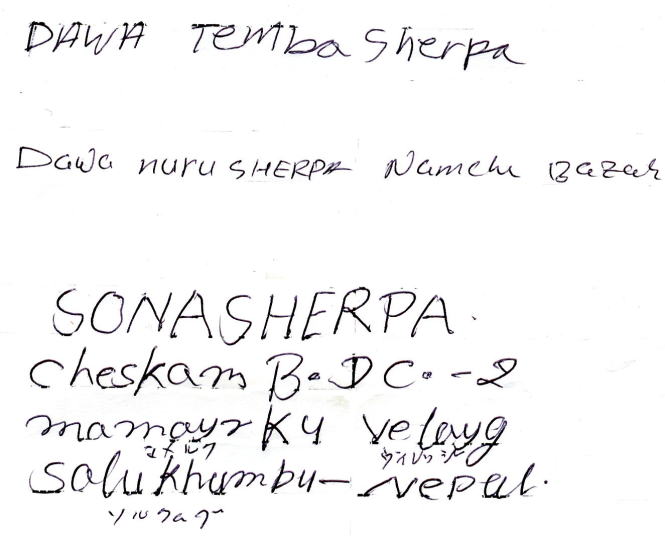 DAWA Temba Sherpa
Dawa nuru SHERPA Namche Bazar
SONA SHERPA.
Cheskam B.DC.-2
mamayrku velayg
ママルク ヴィレッジ
Solukhumbu-Nepal.
ソルクーブー